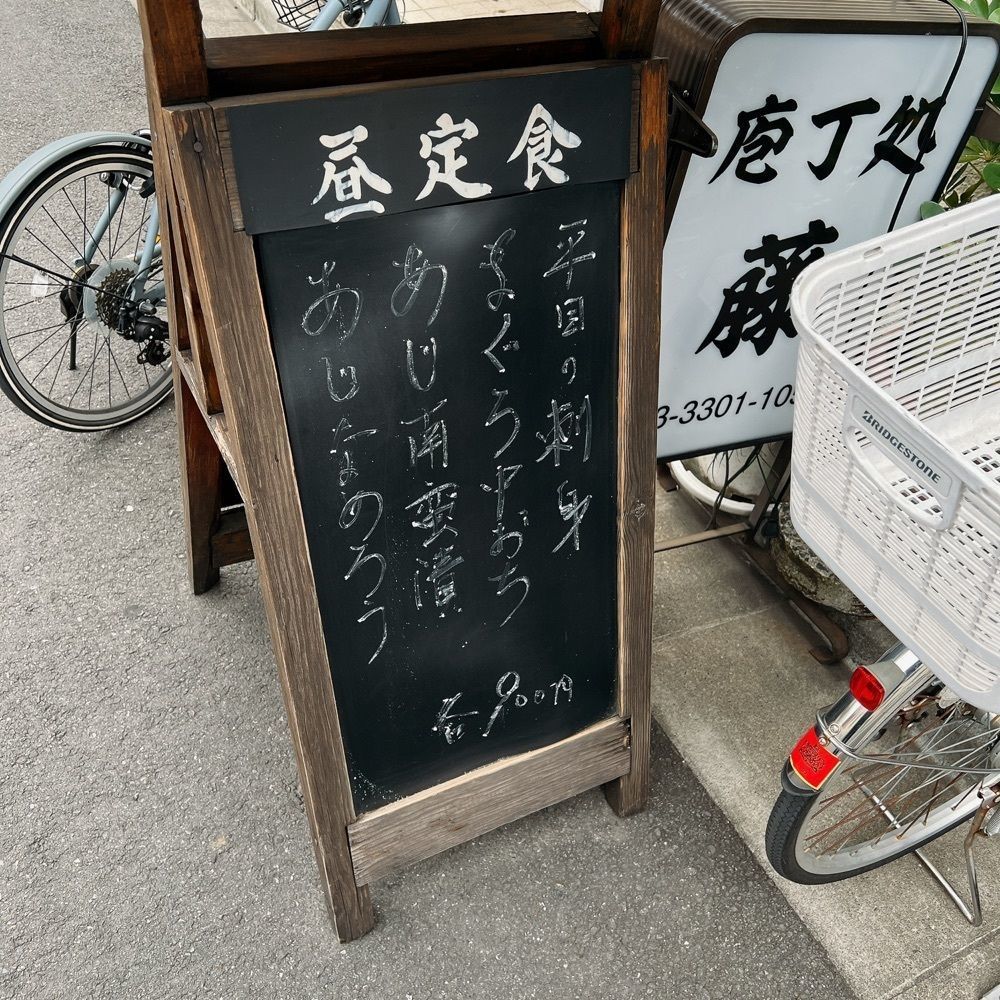 昼定食
平目の刺身
まぐろ中おち
あじ南蛮漬
あじなめろう
各900円
庖丁処
藤
3-3301-105
BRIDGESTONE